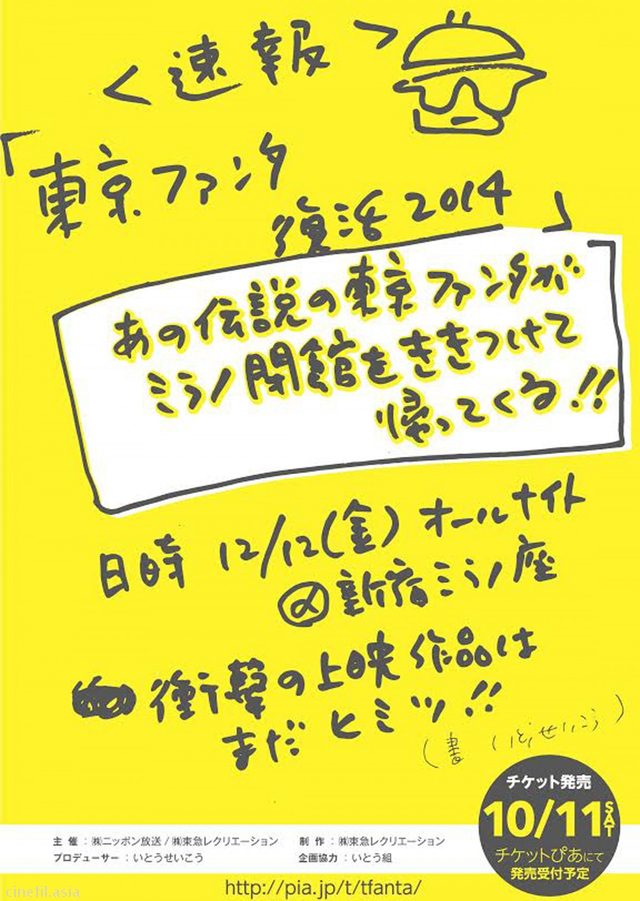 <速報>
「東京ファンタ
復活2014」
あの伝説の東京ファンタが
ミラノ閉館をききつけて
帰ってくる!!
日時 12/12(金) オールナイト
@新宿ミラノ座
衝撃の上映作品は
まだヒミツ!!
(書 いとうせいこう)
チケット発売
10/11SAT
チケットぴあにて
発売受付予定
主 催 : ㈱ニッポン放送 / ㈱東急レクリエーション 制 作 : ㈱東急レクリエーション
プロデューサー : いとうせいこう 企画協力 : いとう組
http://pia.jp/t/tfanta/
cinefil.asia